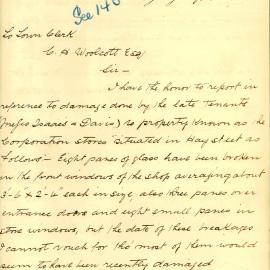 See 146
To Town Clerk
C H Woolcott Esq
Sir -
I have the honor to report in
reference to damage done by the late tenants
(Mefss Isaacs & Davis) to property known as the
Corporation stores "situated in Hay street as
follows - Eight panes of glass have been broken
in the front windows of the shop averaging about
3-6 x 2-4 each in size, also three panes over
entrance doors and eight small panes in
store windows, but the date of these breakages
I cannot vouch for the most of them would
seem to have been recently damaged